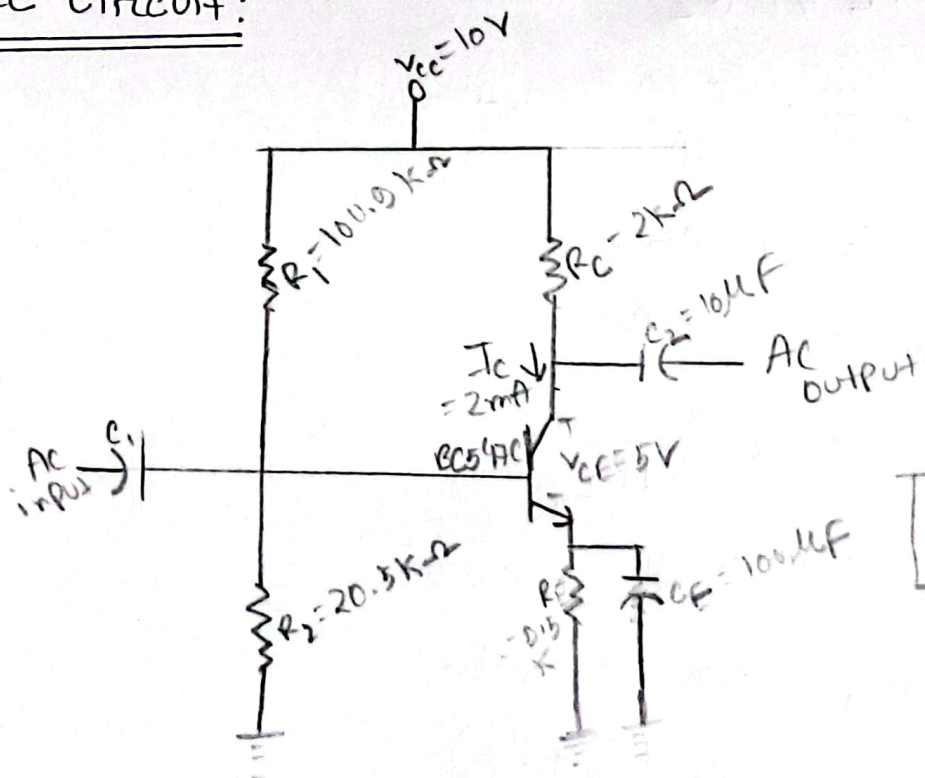 CIRCUIT:
Vcc=10V
R1=100.9KΩ
RC-2KΩ
C2=10μF
Ic
=2mA
AC
output
C1
AC
input
BC547C
VCE=5V
R2=20.5KΩ
RE
-0.5
K
CE-100μF